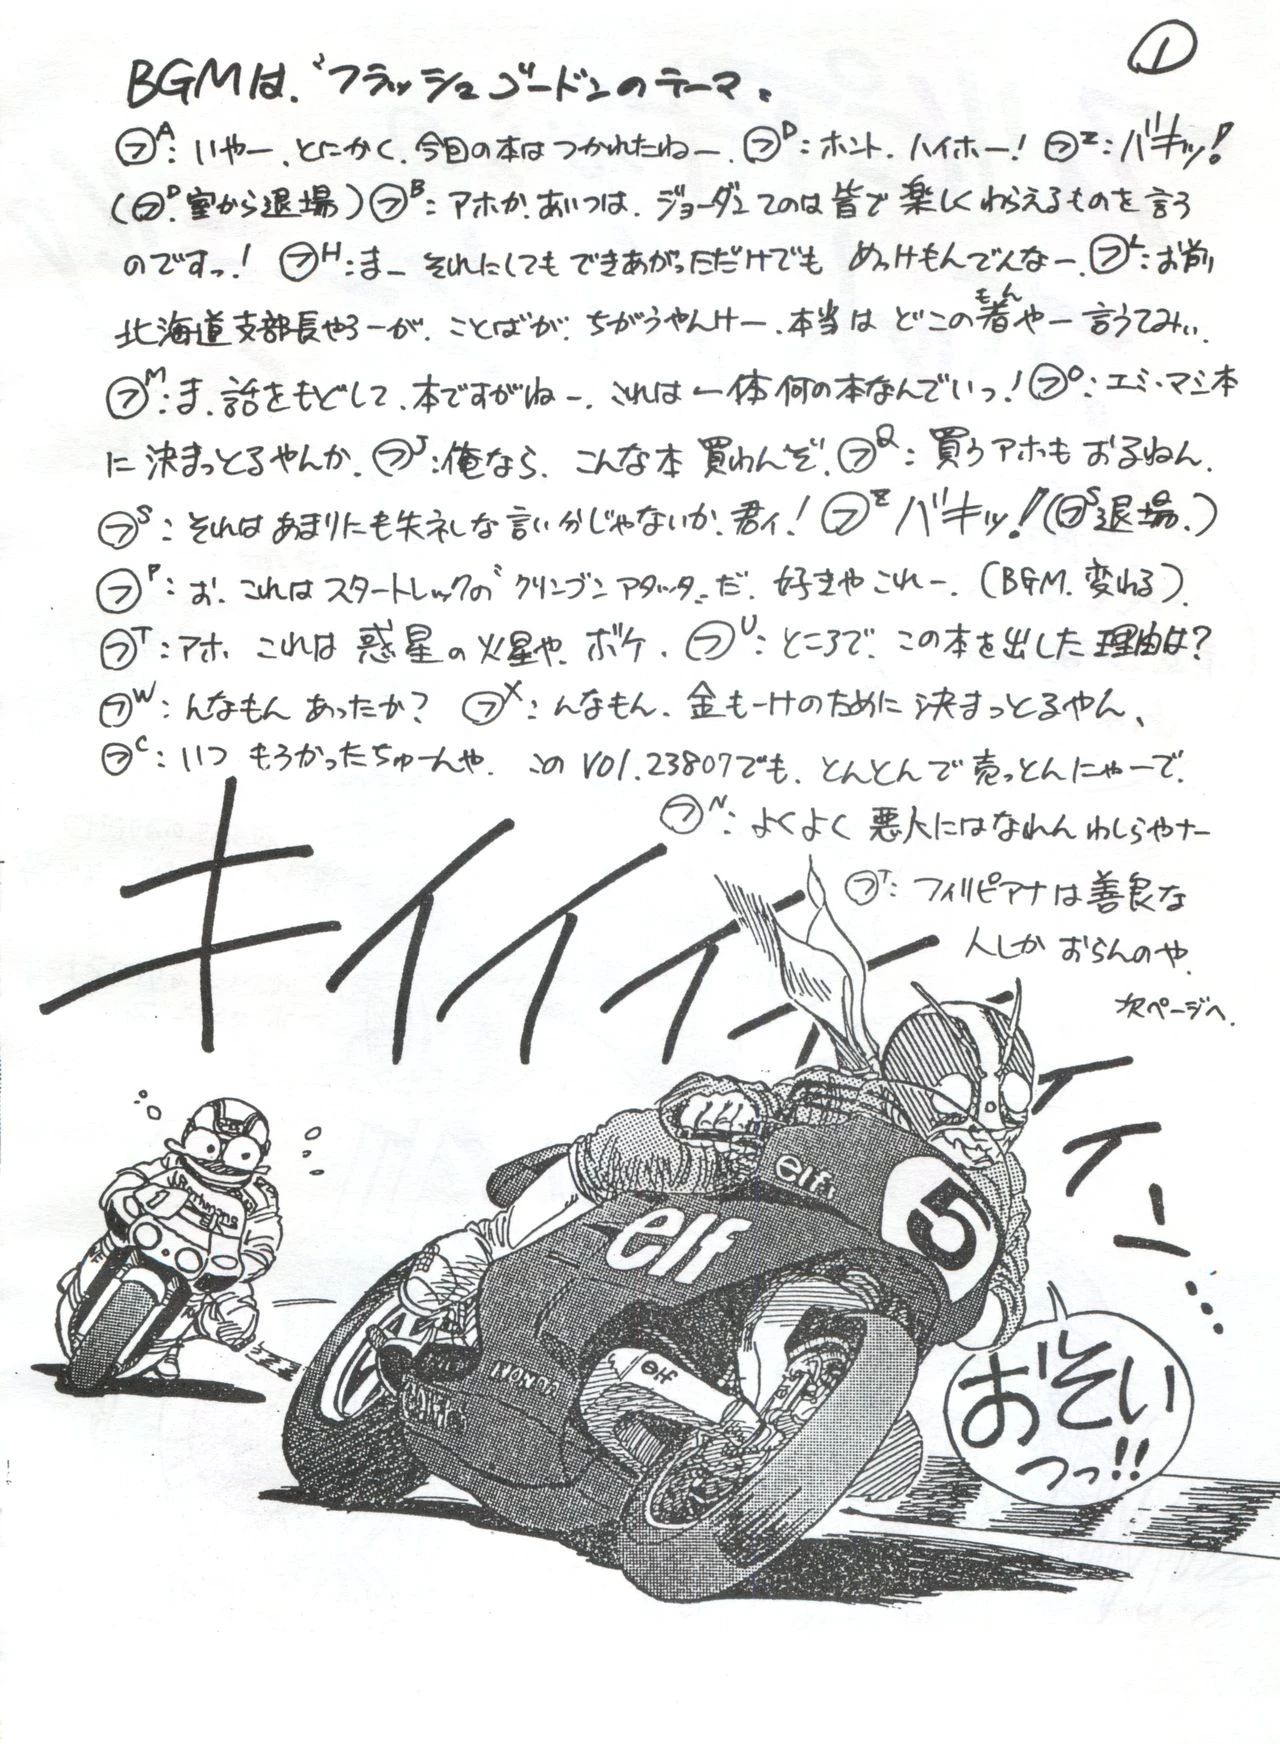 ①
BGMは、〝フラッシュゴードンのテーマ。
㋫A：いやー、とにかく、今回の本はつかれたねー、㋫D：ホント、ハイホー！ ㋫Z：バキッ！
（㋫D、室から退場）㋫B：アホか、あいつは、ジョーダンてのは皆で楽しくわらえるものを言う
のですっ！ ㋫H：まー それにしてもできあがっただけでも めっけもんでんなー、㋫L：お前
北海道支部長やろーが、ことばが、ちがうやんけー、本当はどこの者(もん)やー言うてみぃ、
㋫M：ま、話をもどして、本ですがねー、これは一体何の本なんでいっ！㋫O：エミ・マミ本
に決まっとるやんか、㋫J：俺なら、こんな本買わんぞ、㋫Q：買うアホもおるねん、
㋫S：それはあまりにも失礼な言い分じゃないか、君ィ！ ㋫Z バキッ！（㋫S退場、）
㋫P：お、これはスタートレックの〝クリンゴンアタック〟だ、好きやこれー、（BGM、変わる）
㋫T：アホ、これは惑星の火星や、ボケ、㋫U：ところで、この本を出した理由は？
㋫W：んなもん あったか？ ㋫X：んなもん、金もーけのために決まっとるやん、
㋫C：いつ もうかったちゅーんや、この VOl.23807でも、とんとんで売っとんにゃーで、
㋫N：よくよく悪人にはなれんわしらやナー
㋫T：フィリピアナは善良な
人しかおらんのや、
次ページへ、
キイイイイイイイー…
Rothmans
elf
5
elf
elf
HONDA
おそい
つっ!!